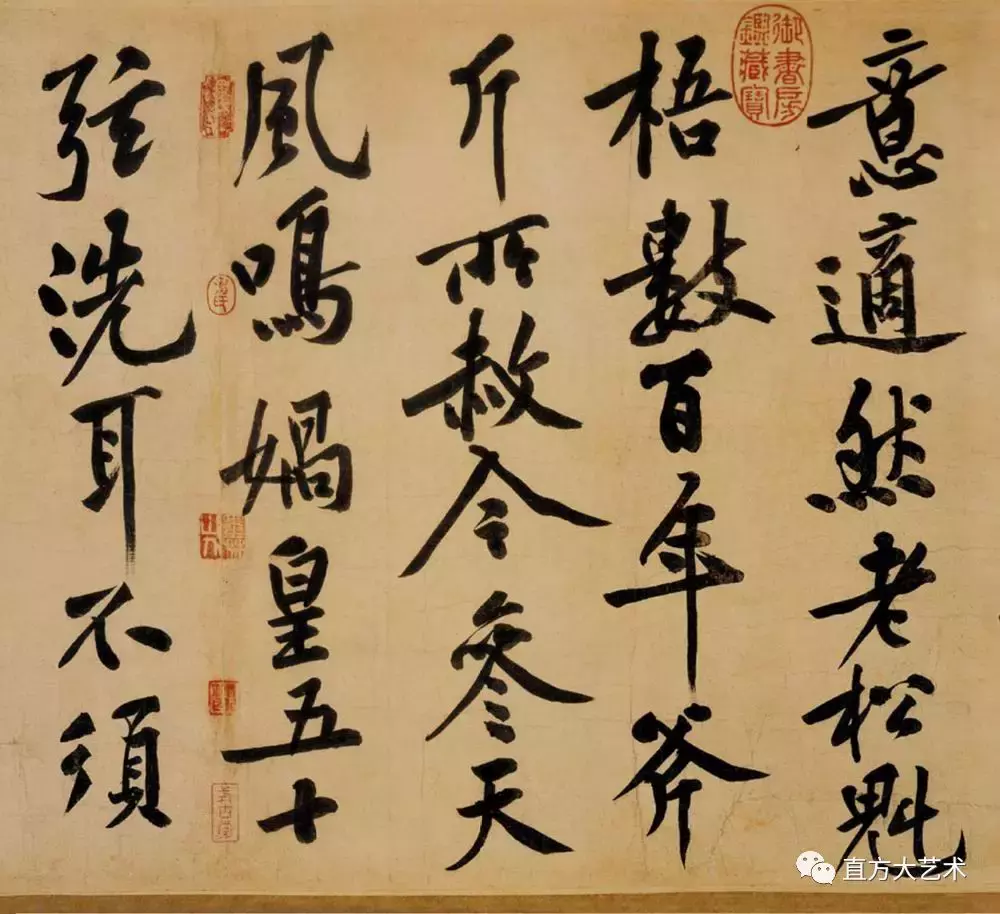 意適然老松魁
梧數百年斧
斤所赦今參天
風鳴媧皇五十
弦洗耳不須
御書房
鑑藏寶
直方大艺术